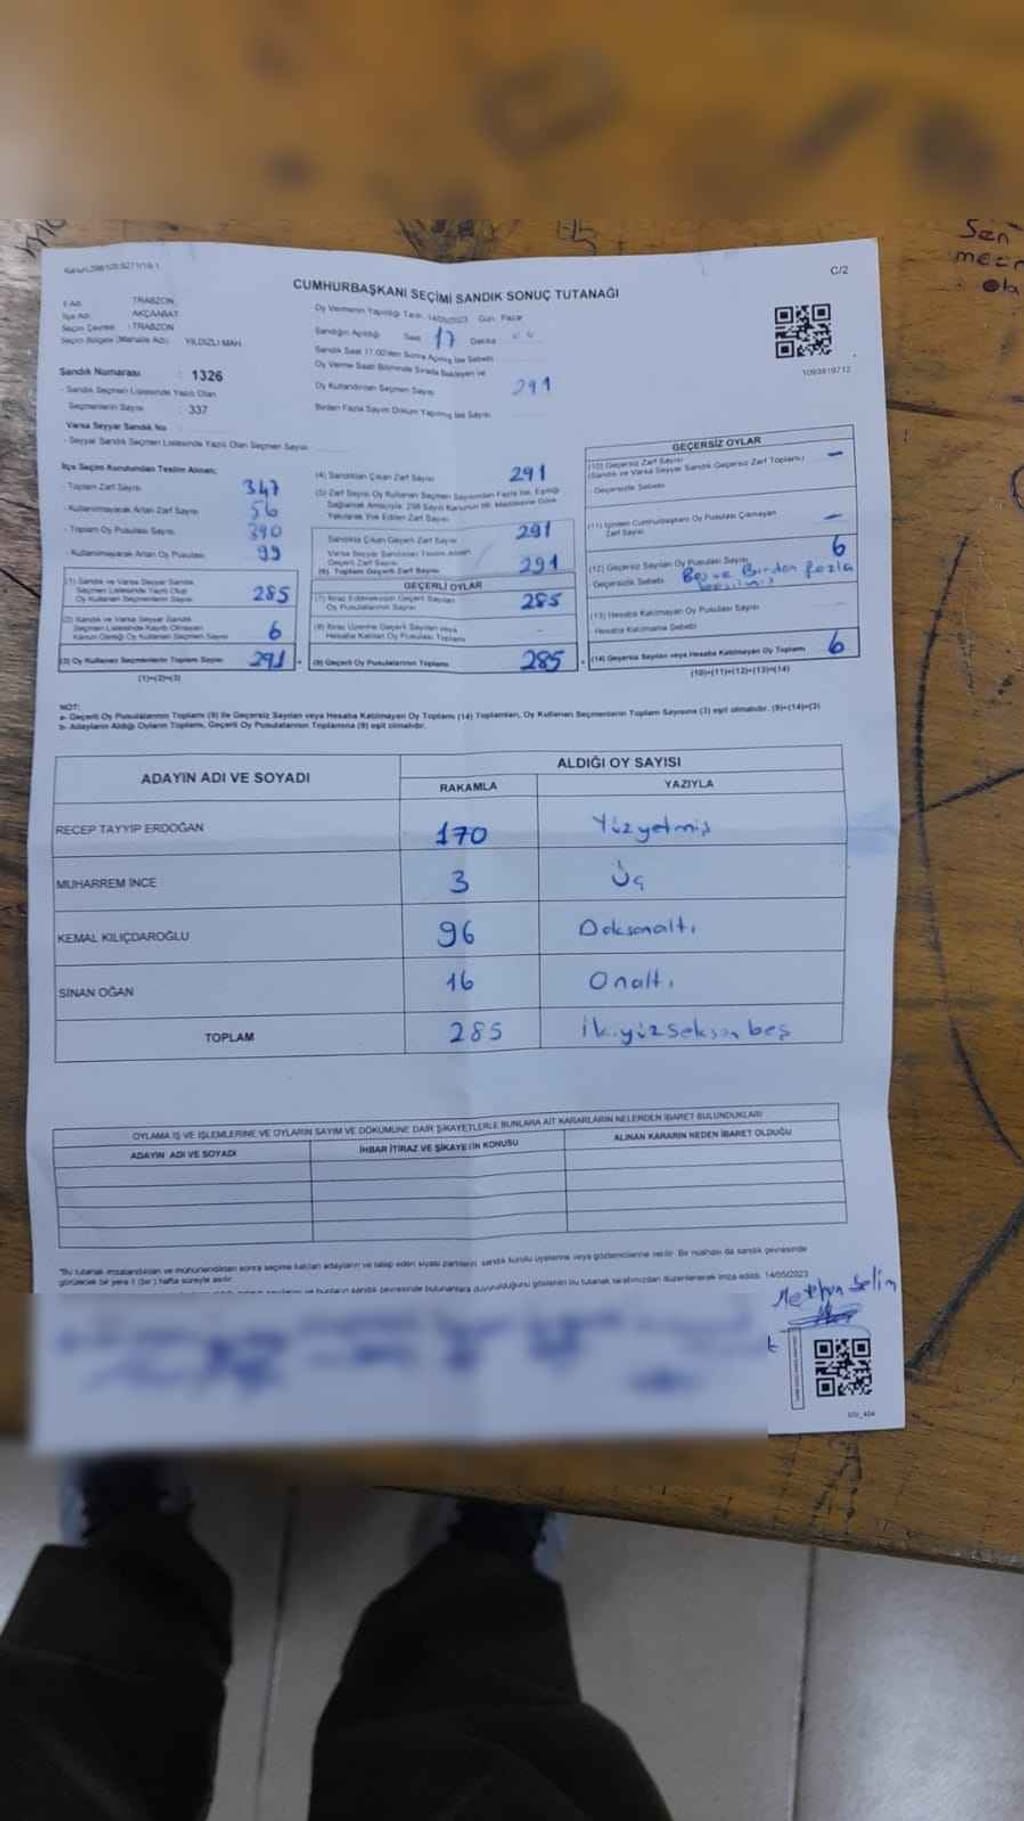 C/2
CUMHURBAŞKANI SEÇİMİ SANDIK SONUÇ TUTANAĞI
İl Adı TRABZON
İlçe Adı AKÇAABAT
Seçim Çevresi : TRABZON
Seçim Bölgesi (Mahalle Adı) YILDIZLI MAH.
Oy Vermenin Yapıldığı Tarih: 14/05/2023 Gün: Pazar
Sandığın Açıldığı Saat 17 Dakika
Sandık Saat 17:00'den Sonra Açılmış İse Sebebi
Oy Verme Saati Bitiminde Sırada Bekleyen ve
Oy Kullandırılan Seçmen Sayısı 291
Birden Fazla Sayım Döküm Yapılmış İse Sayısı
1093819712
Sandık Numarası : 1326
- Sandık Seçmen Listesinde Yazılı Olan
Seçmenlerin Sayısı : 337
Varsa Seyyar Sandık No
- Seyyar Sandık Seçmen Listesinde Yazılı Olan Seçmen Sayısı
İlçe Seçim Kurulundan Teslim Alınan;
- Toplam Zarf Sayısı 347
- Kullanılmayarak Artan Zarf Sayısı 56
- Toplam Oy Pusulası Sayısı 390
- Kullanılmayarak Artan Oy Pusulası 99
(1) Sandık ve Varsa Seyyar Sandık
Seçmen Listesinde Yazılı Olup
Oy Kullanan Seçmenlerin Sayısı 285
(2) Sandık ve Varsa Seyyar Sandık
Seçmen Listesinde Kayıtlı Olmayan
Kanun Gereği Oy Kullanan Seçmen Sayısı 6
(3) Oy Kullanan Seçmenlerin Toplam Sayısı 291
(1)+(2)=(3)
(4) Sandıktan Çıkan Zarf Sayısı 291
(5) Zarf Sayısı Oy Kullanan Seçmen Sayısından Fazla İse, Eşitliği
Sağlamak Amacıyla; 298 Sayılı Kanunun 98. Maddesine Göre
Yakılarak Yok Edilen Zarf Sayısı
Sandıkta Çıkan Geçerli Zarf Sayısı 291
Varsa Seyyar Sandıktan Teslim Alınan
Geçerli Zarf Sayısı
(6) Toplam Geçerli Zarf Sayısı 291
GEÇERLİ OYLAR
(7) İtiraz Edilmeksizin Geçerli Sayılan
Oy Pusulalarının Sayısı 285
(8) İtiraz Üzerine Geçerli Sayılan veya
Hesaba Katılan Oy Pusulası Toplamı -
(9) Geçerli Oy Pusulalarının Toplamı 285
GEÇERSİZ OYLAR
(10) Geçersiz Zarf Sayısı
(Sandık ve Varsa Seyyar Sandık Geçersiz Zarf Toplamı) -
Geçersizlik Sebebi
(11) İçinden Cumhurbaşkanı Oy Pusulası Çıkmayan
Zarf Sayısı -
(12) Geçersiz Sayılan Oy Pusulası Sayısı 6
Geçersizlik Sebebi Boş ve Birden fazla
(13) Hesaba Katılmayan Oy Pusulası Sayısı
Hesaba Katılmama Sebebi
(14) Geçersiz Sayılan veya Hesaba Katılmayan Oy Toplamı 6
(10)+(11)+(12)+(13)=(14)
NOT:
a- Geçerli Oy Pusulalarının Toplamı (9) ile Geçersiz Sayılan veya Hesaba Katılmayan Oy Toplamı (14) Toplamları, Oy Kullanan Seçmenlerin Toplam Sayısına (3) eşit olmalıdır. (9)+(14)=(3)
b- Adayların Aldığı Oyların Toplamı, Geçerli Oy Pusulalarının Toplamına (9) eşit olmalıdır.
ADAYIN ADI VE SOYADI
ALDIĞI OY SAYISI
RAKAMLA YAZIYLA
RECEP TAYYİP ERDOĞAN 170 Yüzyetmiş
MUHARREM İNCE 3 Üç
KEMAL KILIÇDAROĞLU 96 Doksanaltı
SİNAN OĞAN 16 Onaltı
TOPLAM 285 ikiyüzseksen beş
OYLAMA İŞ VE İŞLEMLERİNE VE OYLARIN SAYIM VE DÖKÜMÜNE DAİR ŞİKAYETLERLE BUNLARA AİT KARARLARIN NELERDEN İBARET BULUNDUKLARI
ADAYIN ADI VE SOYADI İHBAR İTİRAZ VE ŞİKAYETİN KONUSU ALINAN KARARIN NEDEN İBARET OLDUĞU
"Bu tutanak imzalandıktan ve mühürlendikten sonra seçime katılan adayların ve talep eden siyasi partilerin sandık kurulu üyelerine veya gözlemcilerine verilir. Bir nüshası da sandık çevresinde
görülecek bir yere 1 (bir) hafta süreyle asılır.
14/05/2023
Selim
Sen